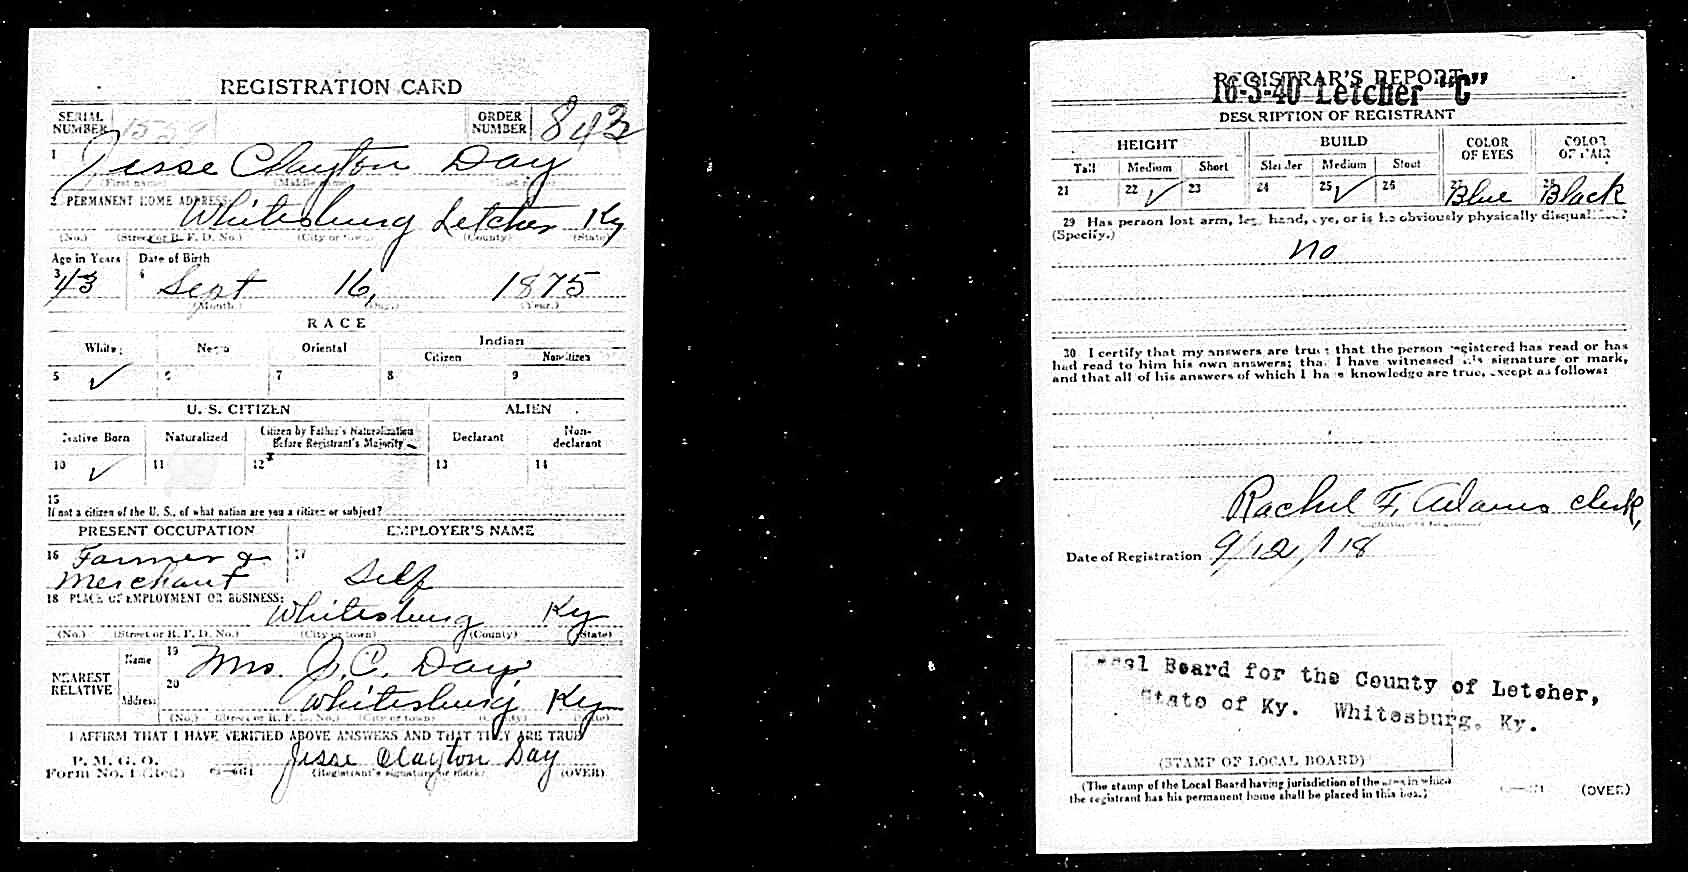 REGISTRATION CARD
SERIAL NUMBER 1559 ORDER NUMBER 843
1 Jesse Clayton Day
(First name) (Middle name) (Last name)
2 PERMANENT HOME ADDRESS:
Whitesburg Letcher Ky
(No.) (Street or R. F. D. No.) (City or town) (County) (State)
Age in Years Date of Birth
3 43 4 Sept 16, 1875
(Month.) (Day.) (Year.)
RACE
White Negro Oriental Indian
Citizen Noncitizen
5 ✓ 6 7 8 9
U. S. CITIZEN ALIEN
Native Born Naturalized Citizen by Father's Naturalization Before Registrant's Majority Declarant Non-declarant
10 ✓ 11 12 13 14
15
If not a citizen of the U. S., of what nation are you a citizen or subject?
PRESENT OCCUPATION EMPLOYER'S NAME
16 Farmer & 17
Merchant Self
18 PLACE OF EMPLOYMENT OR BUSINESS:
Whitesburg Ky
(No.) (Street or R. F. D. No.) (City or town) (County) (State)
NEAREST RELATIVE Name 19 Mrs. J. C. Day
Address 20 Whitesburg Ky
(No.) (Street or R. F. D. No.) (City or town) (County) (State)
I AFFIRM THAT I HAVE VERIFIED ABOVE ANSWERS AND THAT THEY ARE TRUE
P. M. G. O.
Form No. 1 (Red) Jesse Clayton Day
(Registrant's signature or mark) (OVER)
REGISTRAR'S REPORT
16-3-40 Letcher "C"
DESCRIPTION OF REGISTRANT
HEIGHT BUILD COLOR OF EYES COLOR OF HAIR
Tall Medium Short Slender Medium Stout
21 22 ✓ 23 24 25 ✓ 26 27 Blue 28 Black
29 Has person lost arm, leg, hand, eye, or is he obviously physically disqualified?
(Specify.)
no
30 I certify that my answers are true; that the person registered has read or has
had read to him his own answers; that I have witnessed his signature or mark,
and that all of his answers of which I have knowledge are true, except as follows:
Rachel F. Adams clerk,
Date of Registration 9/12/18
Local Board for the County of Letcher,
State of Ky. Whitesburg, Ky.
(STAMP OF LOCAL BOARD)
(The stamp of the Local Board having jurisdiction of the area in which
the registrant has his permanent home shall be placed in this box.)
(OVER)